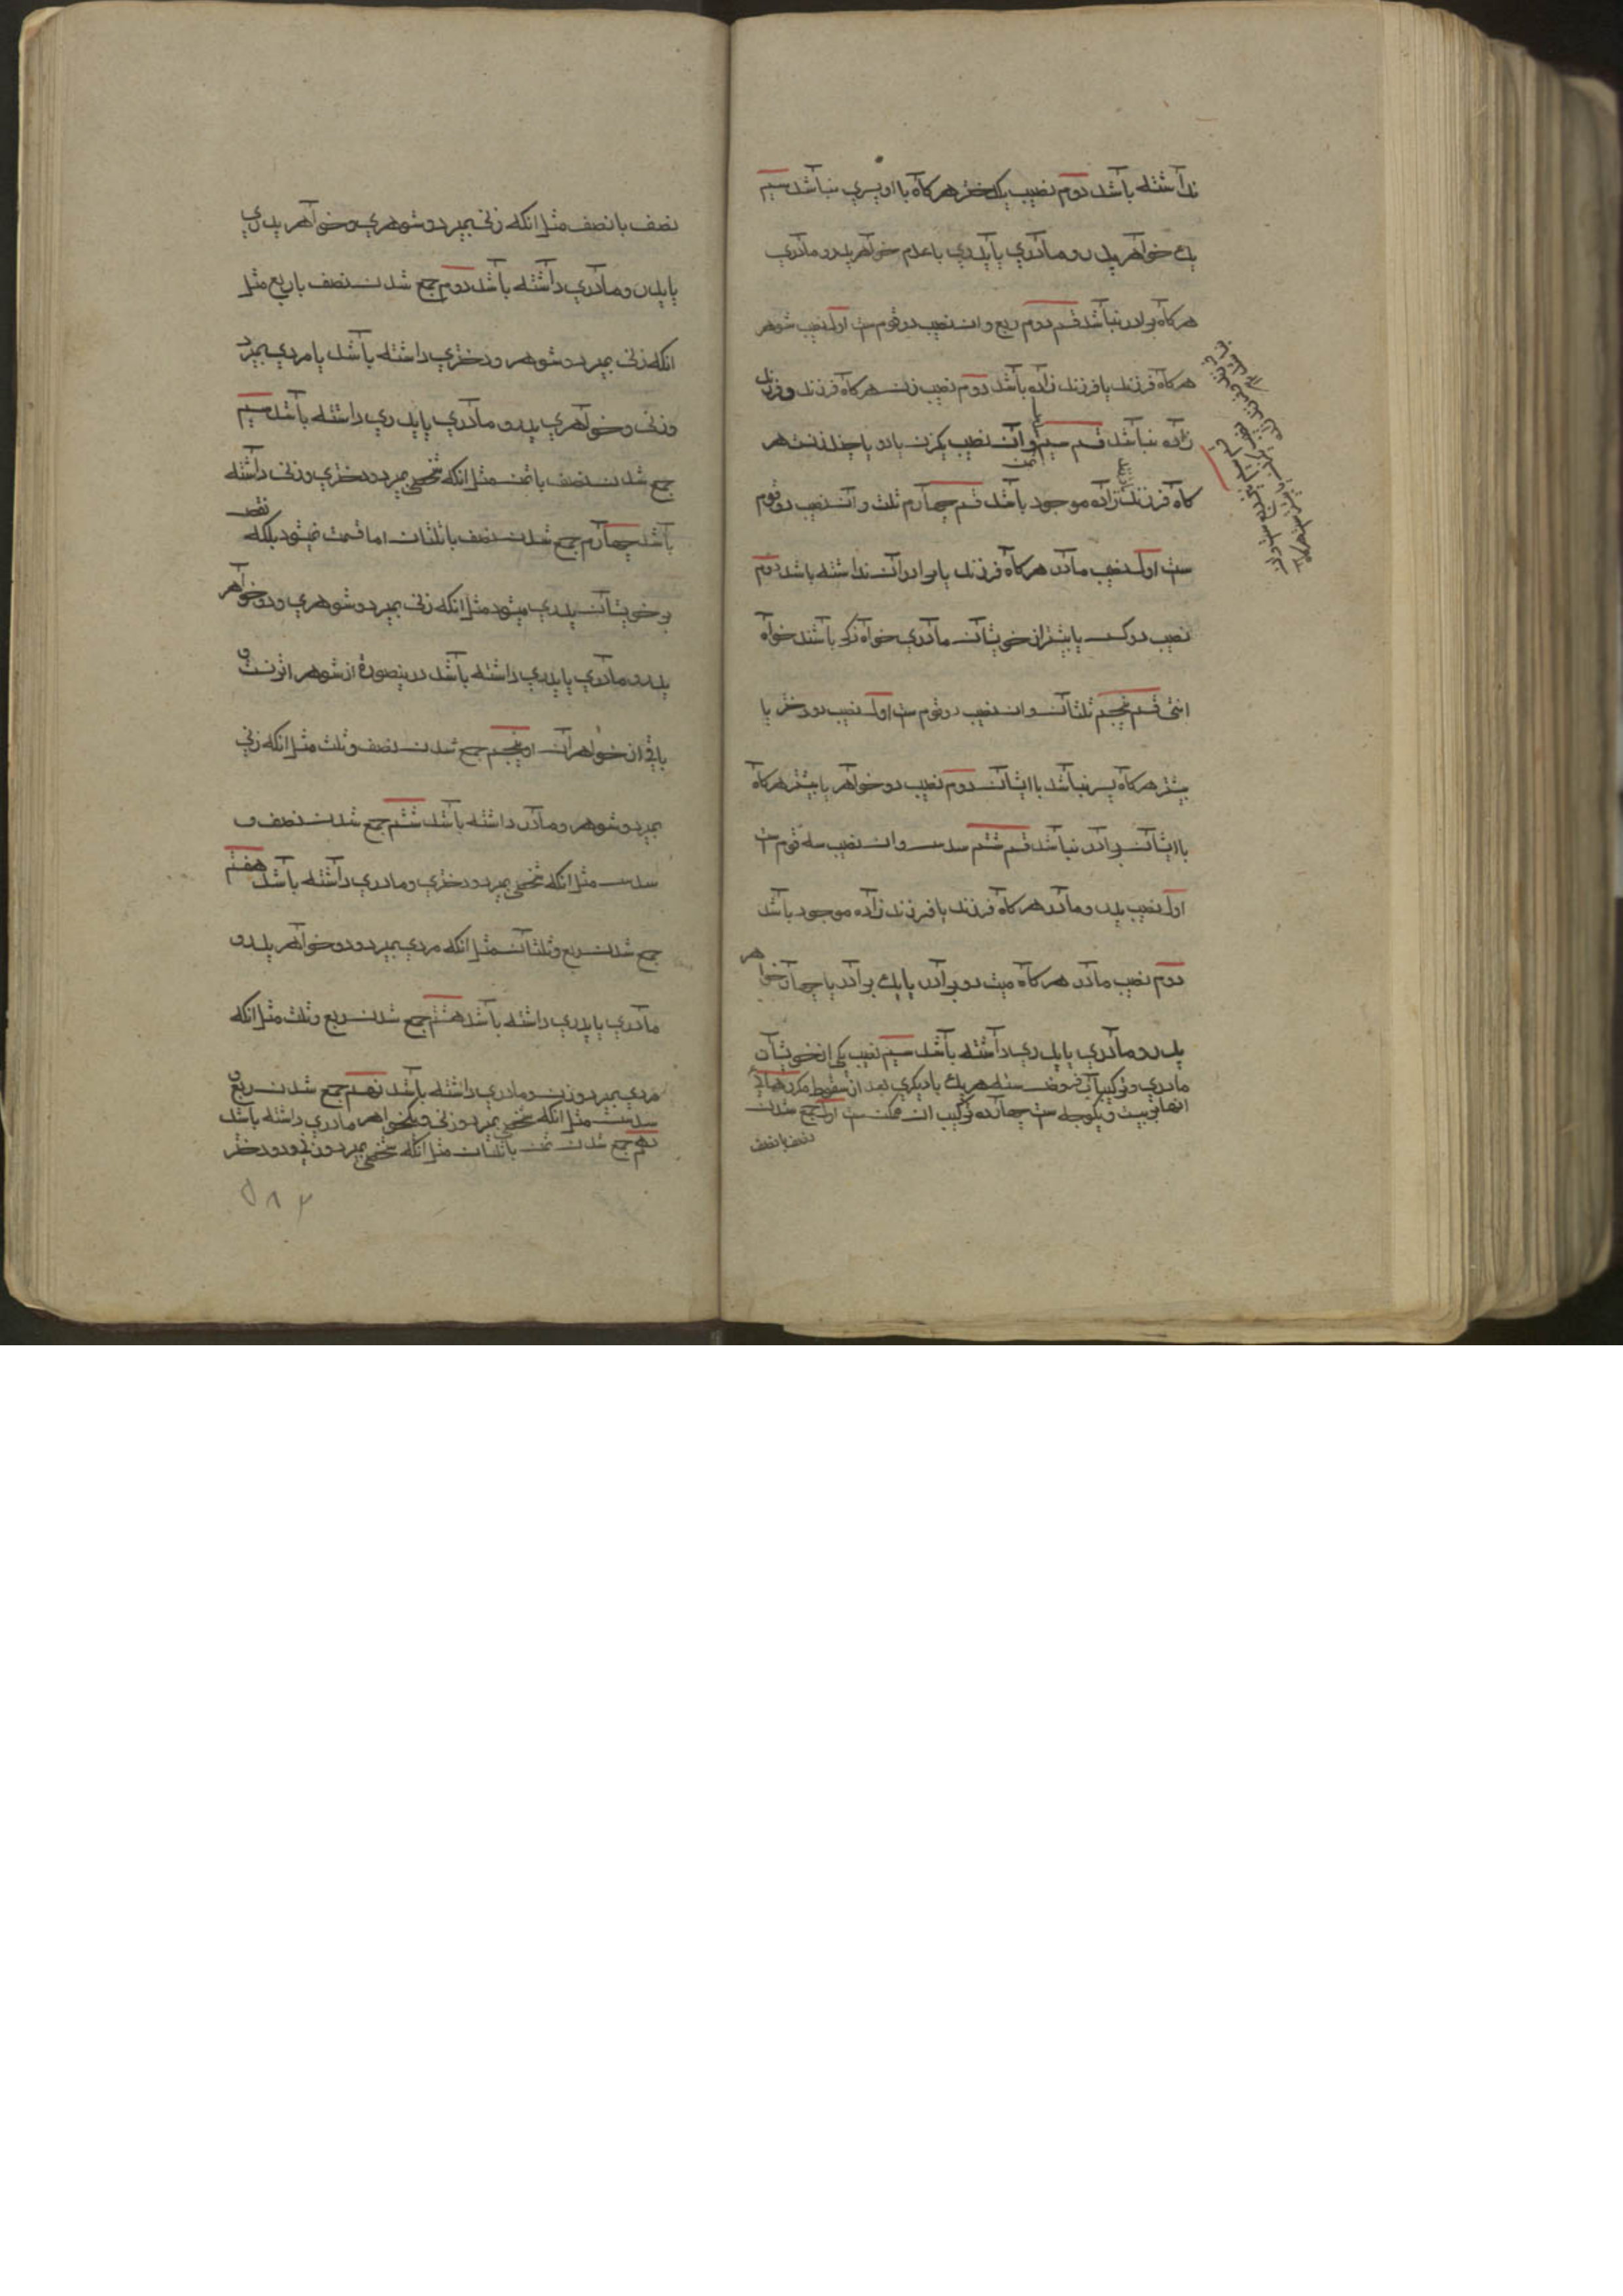 نداشته باشد دوم نصیب یکدختر هر کاه با او پسری نباشد سیم
یک خواهر پدر و مادری یا پدری با عدم خواهر پدر و مادری
هر کاه برادر نباشد قسم دوم ربع و ان نصیب دو قوم ست اول نصیب شوهر
هر کاه فرزند یا فرزند زاده باشد دوم نصیب زن هر کاه فرزند و فرزند
زاده نباشد قسم سیم ثمن و آن نصیب یکزن یا دو یا چند زنست هر
کاه فرزند یا فرزند زاده موجود باشد قسم چهارم ثلث و آن نصیب دو قوم
ست اول نصیب مادر هر کاه فرزند یا برادران نداشته باشد دوم
نصیب دو کس یا بیشتر از خویشان مادری خواه ذکر باشند خواه
انثی قسم پنجم ثلثان و ان نصیب دو قوم ست اول نصیب دو دختر یا
بیشتر هر کاه پسر نباشد با ایشان دوم نصیب دو خواهر یا بیشتر هر کاه
با ایشان برادر نباشد قسم ششم سدس و ان نصیب سه قوم ست
اول نصیب پدر و مادر هر کاه فرزند یا فرزند زاده موجود باشد
دوم نصیب مادر هر کاه میت دو برادر یا یک برادر یا چهار خواهر
پدر و مادری یا پدری داشته باشد سیم نصیب یکی از خویشان
مادری و ترکیبات فروض سته هر یک با دیکری بعد از سقوط مکررهای
انها بیست و یکوجه ست چهارده ترکیب ان ممکن ست اول جمع شدن
نصف با نصف
نصف با نصف مثل انکه زنی بمیرد و شوهری و خواهر پدری
یا پدر و مادری داشته باشد دوم جمع شدن نصف با ربع مثل
انکه زنی بمیرد و شوهر و دختری داشته باشد یا مردی بمیرد
و زنی و خواهری پدر و مادری یا پدری داشته باشد سیم
جمع شدن نصف با ثمن مثل انکه شخصی بمیرد و دختری و زنی داشته
باشد چهارم جمع شدن نصف با ثلثان اما قسمت نمیشود بلکه نقص
بر خویشان پدری میشود مثل انکه زنی بمیرد و شوهری و دو خواهر
پدر و مادری یا پدری داشته باشد درینصورة از شوهر اثر نست و
باقی از خواهران او پنجم جمع شدن نصف و ثلث مثل انکه زنی
بمیرد و شوهر و مادر داشته باشد ششم جمع شدن نصف و
سدس مثل انکه شخصی بمیرد و دختری و مادری داشته باشد هفتم
جمع شدن ربع و ثلثان مثل انکه مردی بمیرد و دو خواهر پدر و
مادری یا پدری داشته باشد هشتم جمع شدن ربع و ثلث مثل انکه
مردی بمیرد و زن و مادری داشته باشد نهم جمع شدن ربع و
سدس مثل انکه شخصی بمیرد و زنی و یکخواهر مادری داشته باشد
دهم جمع شدن ثمن با ثلثان مثل انکه شخصی بمیرد و زنی و دو دختر